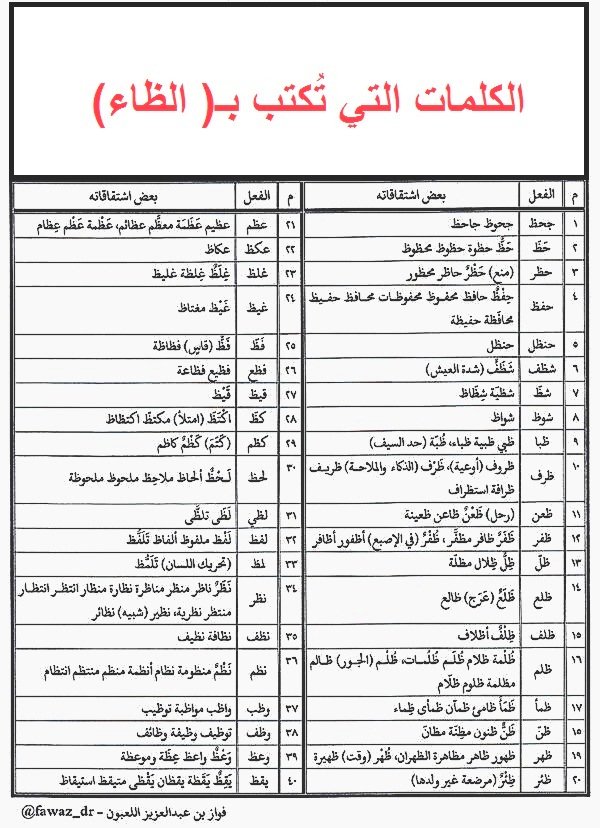 الكلمات التي تُكتب بـ( الظاء)
م الفعل بعض اشتقاقاته
١ جحظ جحوظ جاحظ
٢ حَظّ حَظٌّ حظوة حظوظ محظوظ
٣ حظر (منع) حَظْرٌ حاظر محظور
٤ حفظ حِفْظٌ حافظ محفوظ محفوظات محافظ حفيظ
محافَظة حفيظة
٥ حنظل حنظل
٦ شظف شَظَفٌ (شدة العيش)
٧ شظّ شظيّة شِظَاظ
٨ شوظ شواظ
٩ ظبا ظبي ظبية ظباء، ظُبّة (حد السيف)
١٠ ظرف ظروف (أوعية)، ظَرْف (الذكاء والملاحة) ظريف
ظرافة استظراف
١١ ظعن (رحل) ظَعْنٌ ظاعن ظعينة
١٢ ظفر ظَفَرٌ ظافر مظفّر، ظُفْرٌ (في الإصبع) أظفور أظافر
١٣ ظلّ ظِلٌّ ظِلال مظلّة
١٤ ظلع ظَلَعٌ (عَرَج) ظالع
١٥ ظلف ظِلْفٌ أظلاف
١٦ ظلم ظُلْمة ظلام ظُلَم ظُلُمات، ظُلْم (الجور) ظالم
مظلمة ظلوم ظلّام
١٧ ظمأ ظَمَأٌ ظامئ ظمآن ظمأى ظِماء
١٥ ظنّ ظَنٌّ ظنون مظِنّة مظانّ
١٩ ظهر ظهور ظاهر مظاهرة الظهران، ظُهْر (وقت) ظهيرة
٢٠ ظئر ظِئْرٌ (مرضعة غير ولدها)
م الفعل بعض اشتقاقاته
٢١ عظم عظيم عَظَمَة معظَّم عظائم، عَظْمة عَظْم عِظام
٢٢ عكظ عكاظ
٢٣ غلظ غِلَظٌ غِلظة غليظ
٢٤ غيظ غَيْظ مغتاظ
٢٥ فَظّ فَظٌّ (قاسٍ) فظاظة
٢٦ فظع فظيع فظاعة
٢٧ قيظ قَيْظ
٢٨ كظّ اكْتَظّ (امتلأ) مكتظّ اكتظاظ
٢٩ كظم (كَتَمَ) كَظْمٌ كاظم
٣٠ لحظ لَـحْظٌ ألحاظ ملاحِظ ملحوظ ملحوظة
٣١ لظي لَظًى تلظَّى
٣٢ لفظ لَفْظ ملفوظ ألفاظ تَلَفُّظ
٣٣ لمظ (تحريك اللسان) تَلَمُّظ
٣٤ نظر نَظَرٌ ناظر منظر مناظرة نظارة منظار انتظر انتظار
منتظر نظرية، نظير (شبيه) نظائر
٣٥ نظف نظافة نظيف
٣٦ نظم نَظْمٌ منظومة نظام أنظمة منظم منتظم انتظام
٣٧ وظب واظب مواظبة توظيب
٣٨ وظف توظيف وظيفة وظائف
٣٩ وعظ وَعْظٌ واعظ عِظَة وموعظة
٤٠ يقظ يَقِظٌ يَقَظة يقظان يَقْظى متيقظ استيقاظ
فواز بن عبدالعزيز اللعبون - @fawaz_dr